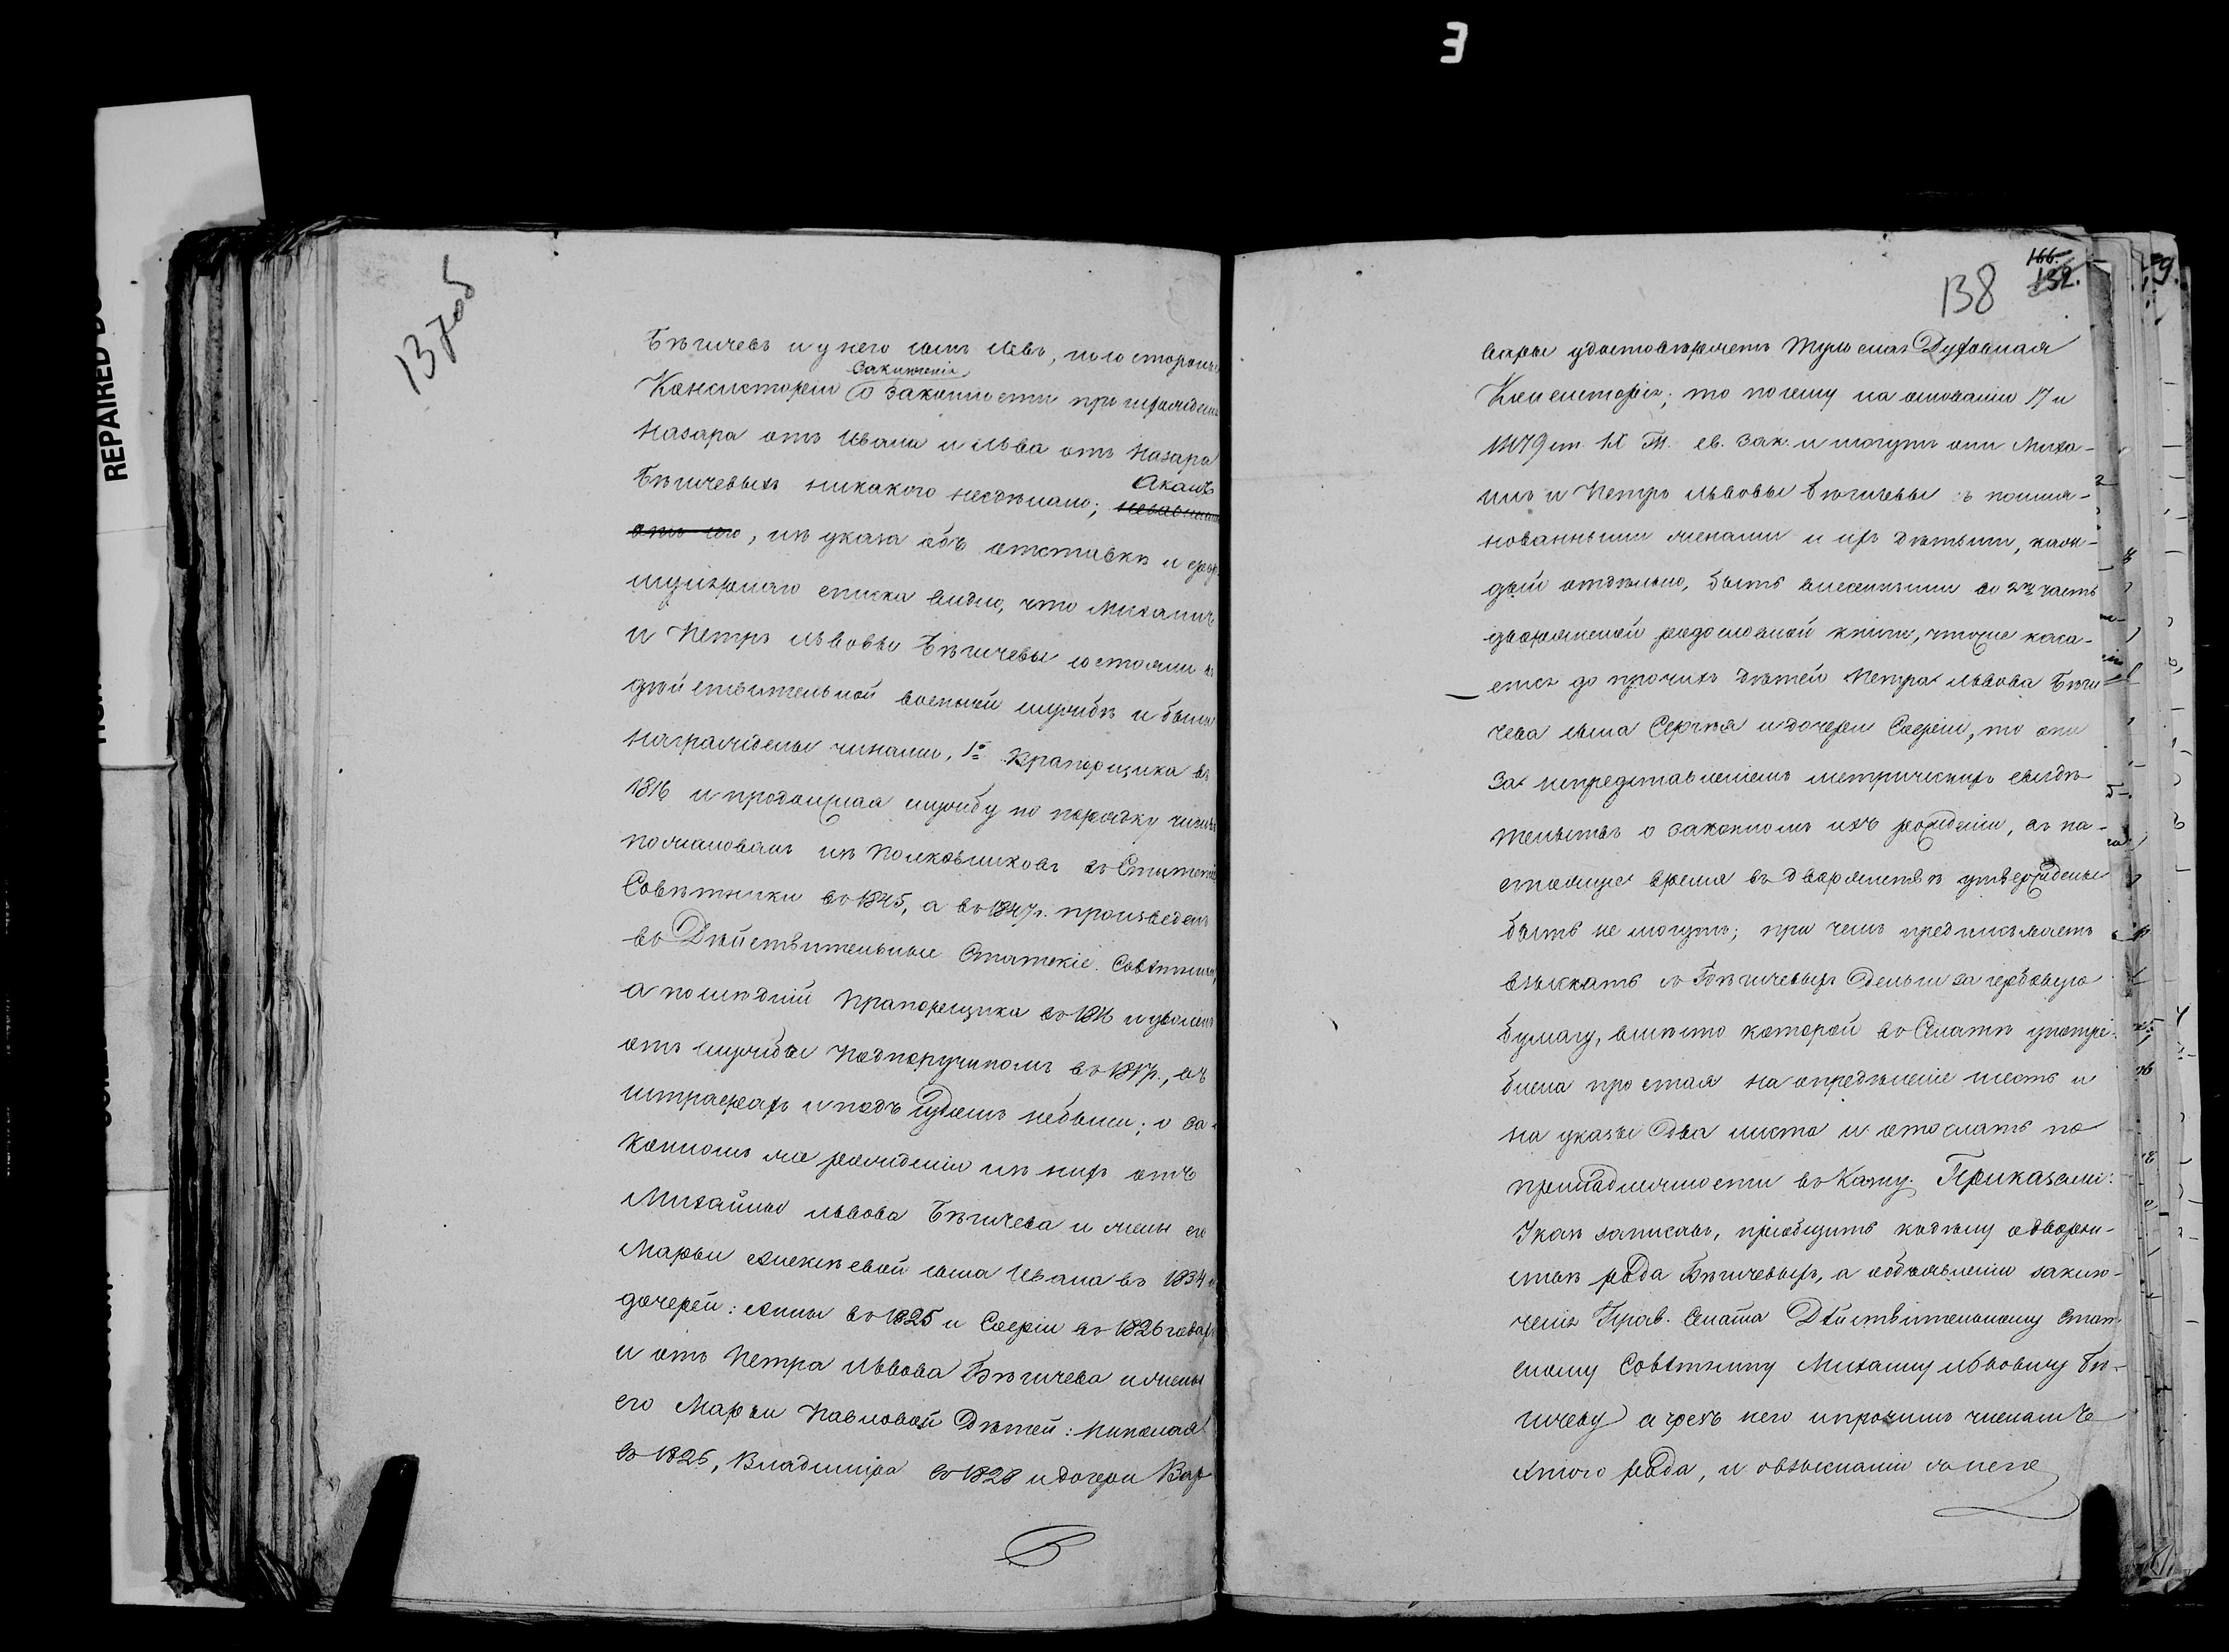 3
REPAIRED DO
137об
Бѣгичевъ и у него сынъ Левъ, но со стороны
Заключенія
Консисторіи о законности происхожденія
Назара отъ Ивана и Льва отъ Назара
Бѣгичевыхъ никакого несдѣлано; акакъ
, изъ указа объ отставкѣ и фор
мулярнаго списка видно, что Михаилъ
и Петръ Львовы Бѣгичевы состояли въ
дѣйствительной военной службѣ и были
награждены чинами, 1й Прапорщика въ
1816 и продолжая службу по порядку чиновъ
полковниковъ въ Статскіе
Совѣтники въ 1845, а въ 1847г. произведенъ
въ Дѣйствительные Статскіе Совѣтники,
а послѣдній Прапорщика въ 1816 и уволенъ
отъ службы Подпоручикомъ въ 1817г., въ
штрафахъ и подъ судомъ небыли; о за-
конномъ же рожденіи изъ нихъ отъ
Михайлы Львова Бѣгичева и жены его
Марьи Алексѣевой сына Ивана въ 1834 и
дочерей: Анны въ 1825 и Софіи въ 1826 годахъ
и отъ Петра Львова Бѣгичева и жены
его Марьи Павловой Дѣтей: Николая
въ 1826, Владиміра въ 1828 и дочери Вар
166.
132.
138
вары удостовѣряетъ Тульская Духовная
Консисторія; то почему на основаніи 17 и
ст. IX Т. св. Зак. и могутъ они Миха-
илъ и Петръ Львовы Бѣгичевы съ поимя-
нованными женами и ихъ дѣтьми, каж-
дый отдѣльно, быть внесенными во 2ю часть
дворянской родословной книги, чтоже каса-
ется до прочихъ дѣтей Петра Львова Бѣги
чева сына Сергѣя и дочери Софіи, то они
за непредставленіемъ метрическихъ свидѣ
тельствъ о законномъ ихъ рожденіи, въ на-
стоящее время въ дворянствѣ утверждены
быть не могутъ; при чемъ предписываетъ
взыскать съ Бѣгичевыхъ Деньги за гербовую
бумагу, вмѣсто которой въ Сенатѣ употре-
блена простая на опредѣленіе шесть и
на указы Два листа и отослать по
принадлежности въ Казну. Приказали:
Указъ записавъ, пріобщить къ дѣлу о дворян-
ствѣ рода Бѣгичевыхъ, а объ объявленіи заклю-
ченія Прав. Сената Дѣйствительному Стат
скому Совѣтнику Михаилу Львовичу Бѣ-
гичеву а чрезъ него и прочимъ членамъ
этого рода, и о взысканіи съ него